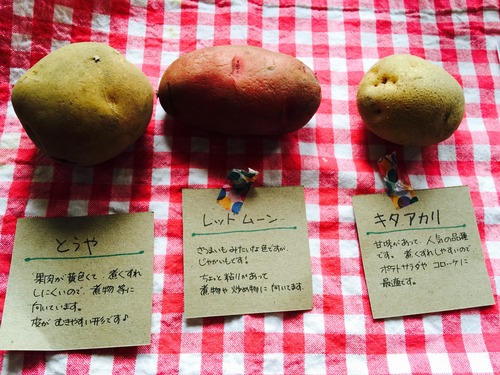 とうや
果肉が黄色くて、煮くずれ
しにくいので、煮物等に
向いています。
皮がむきやすい形です♪
レッドムーン
さつまいもみたいな色ですが、
じゃがいもです!
ちょっと粘りがあって
煮物や炒め物に向いてます
キタアカリ
甘味があって、人気の品種
です。煮くずれしやすいので
ポテトサラダやコロッケに
最適です。